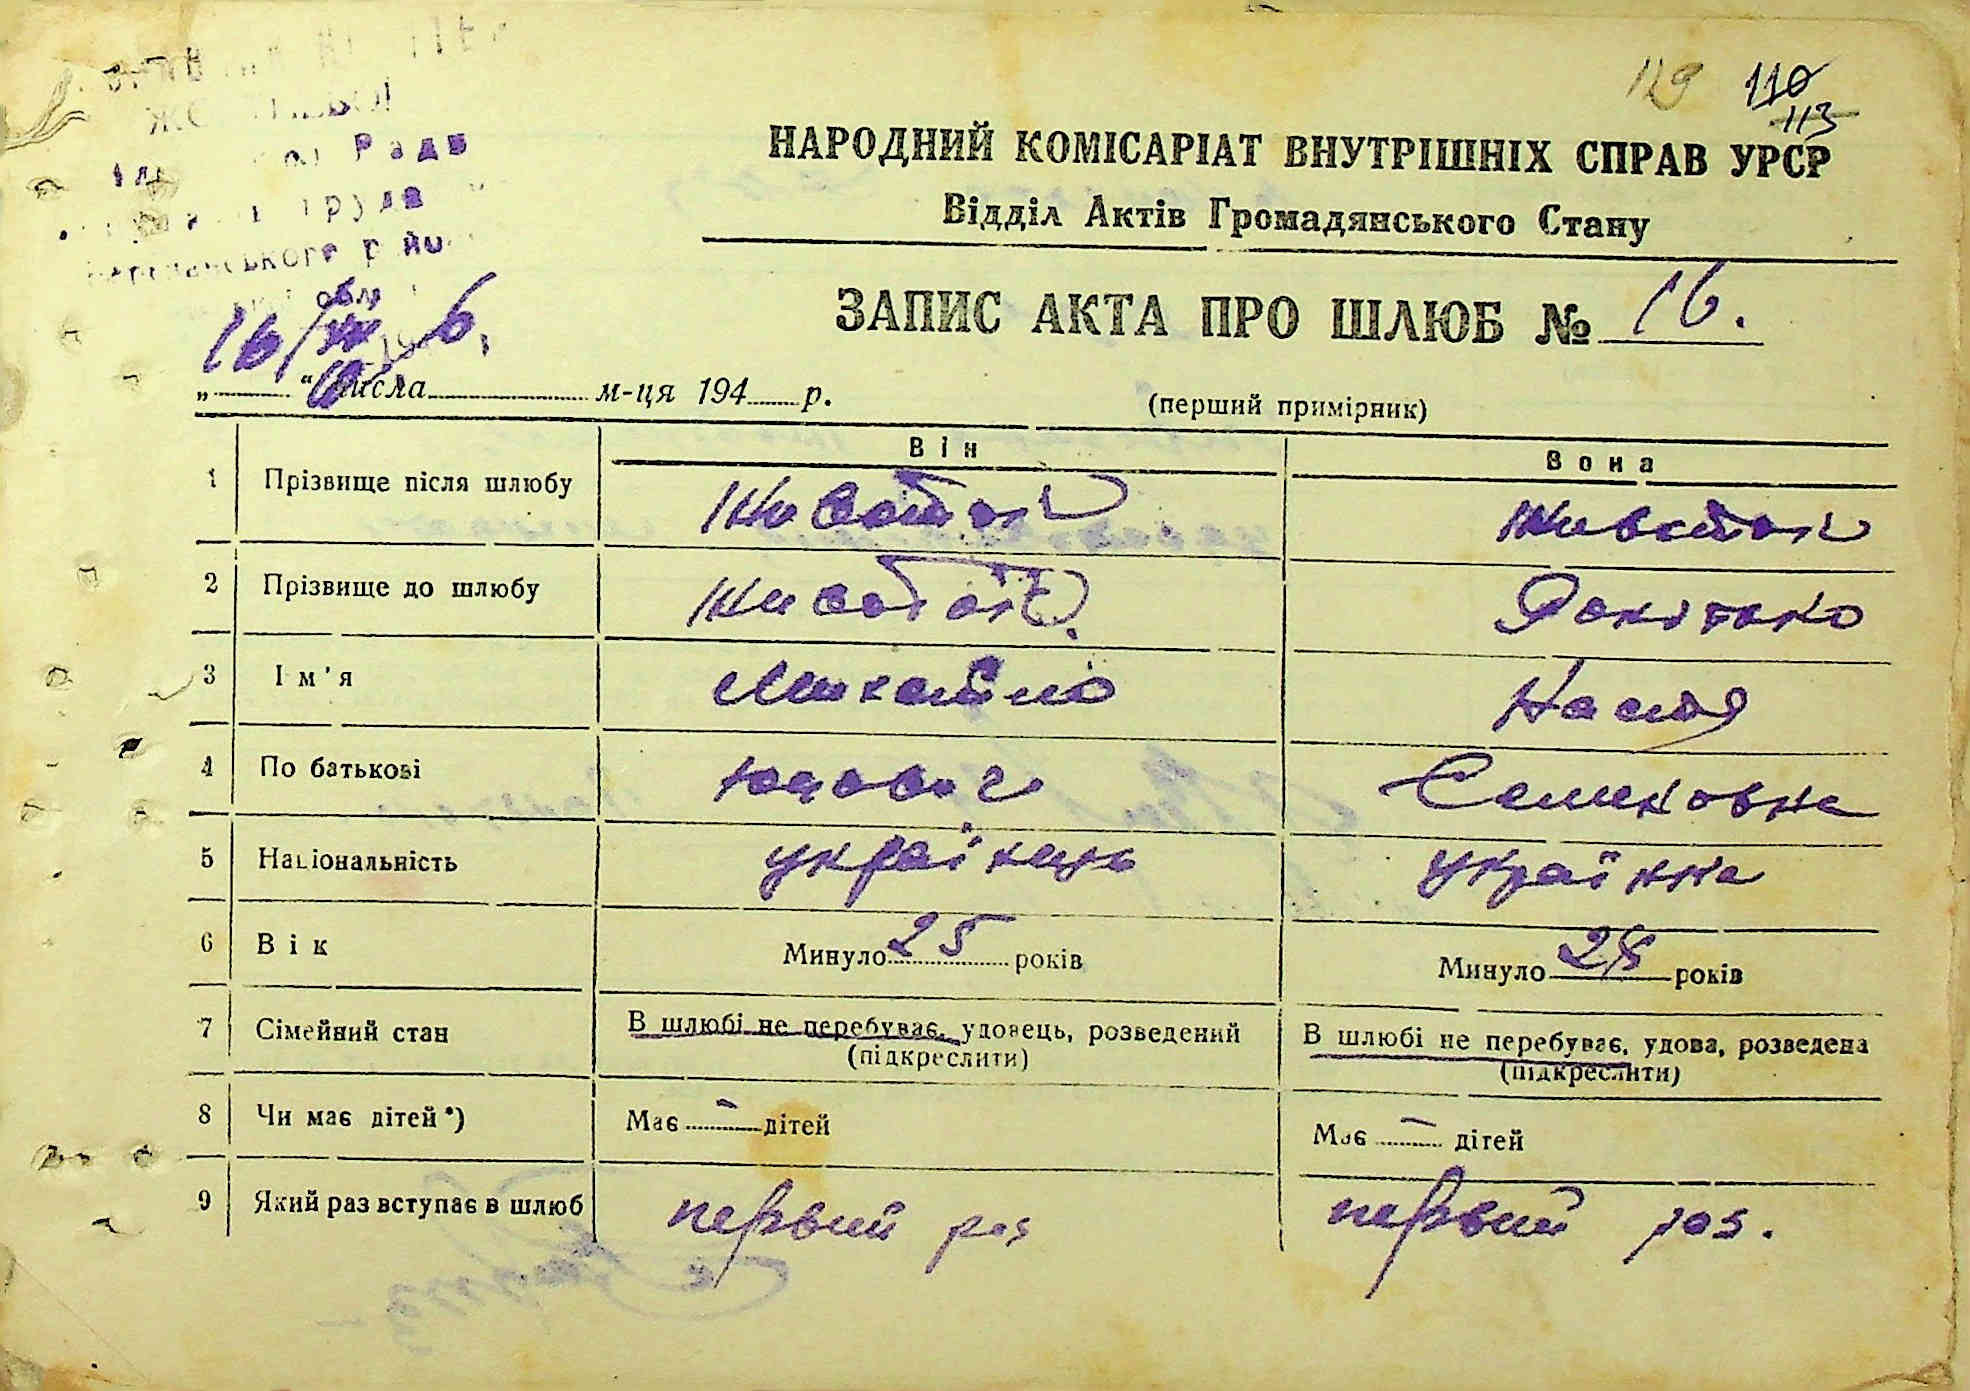 119 110
113
Ради
труда
ського
НАРОДНИЙ КОМІСАРІАТ ВНУТРІШНІХ СПРАВ УРСР
Відділ Актів Громадянського Стану
ЗАПИС АКТА ПРО ШЛЮБ № 16.
обл
16/ 6.
„ “ числа м-ця 194 р.
(перший примірник)
Він Вона
1 Прізвище після шлюбу Животок Животок
2 Прізвище до шлюбу Животок.
3 Ім'я Михайло Настя
4 По батькові Юрович Семеновна
5 Національність українець українка
6 Вік Минуло 25 років Минуло 28 років
7 Сімейний стан В шлюбі не перебуває, удовець, розведений В шлюбі не перебуває, удова, розведена
(підкреслити) (підкреслити)
8 Чи має дітей*) Має – дітей Має – дітей
9 Який раз вступає в шлюб первий раз первий раз.